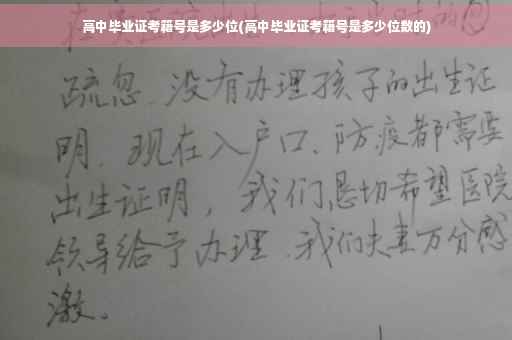 高中毕业证考籍号是多少位(高中毕业证考籍号是多少位数的)
疏忽、没有办理孩子的出生证
明、现在入户口、防疫都需要
出生证明，我们恳切希望医院
领导给予办理、我们夫妻万分感
激。